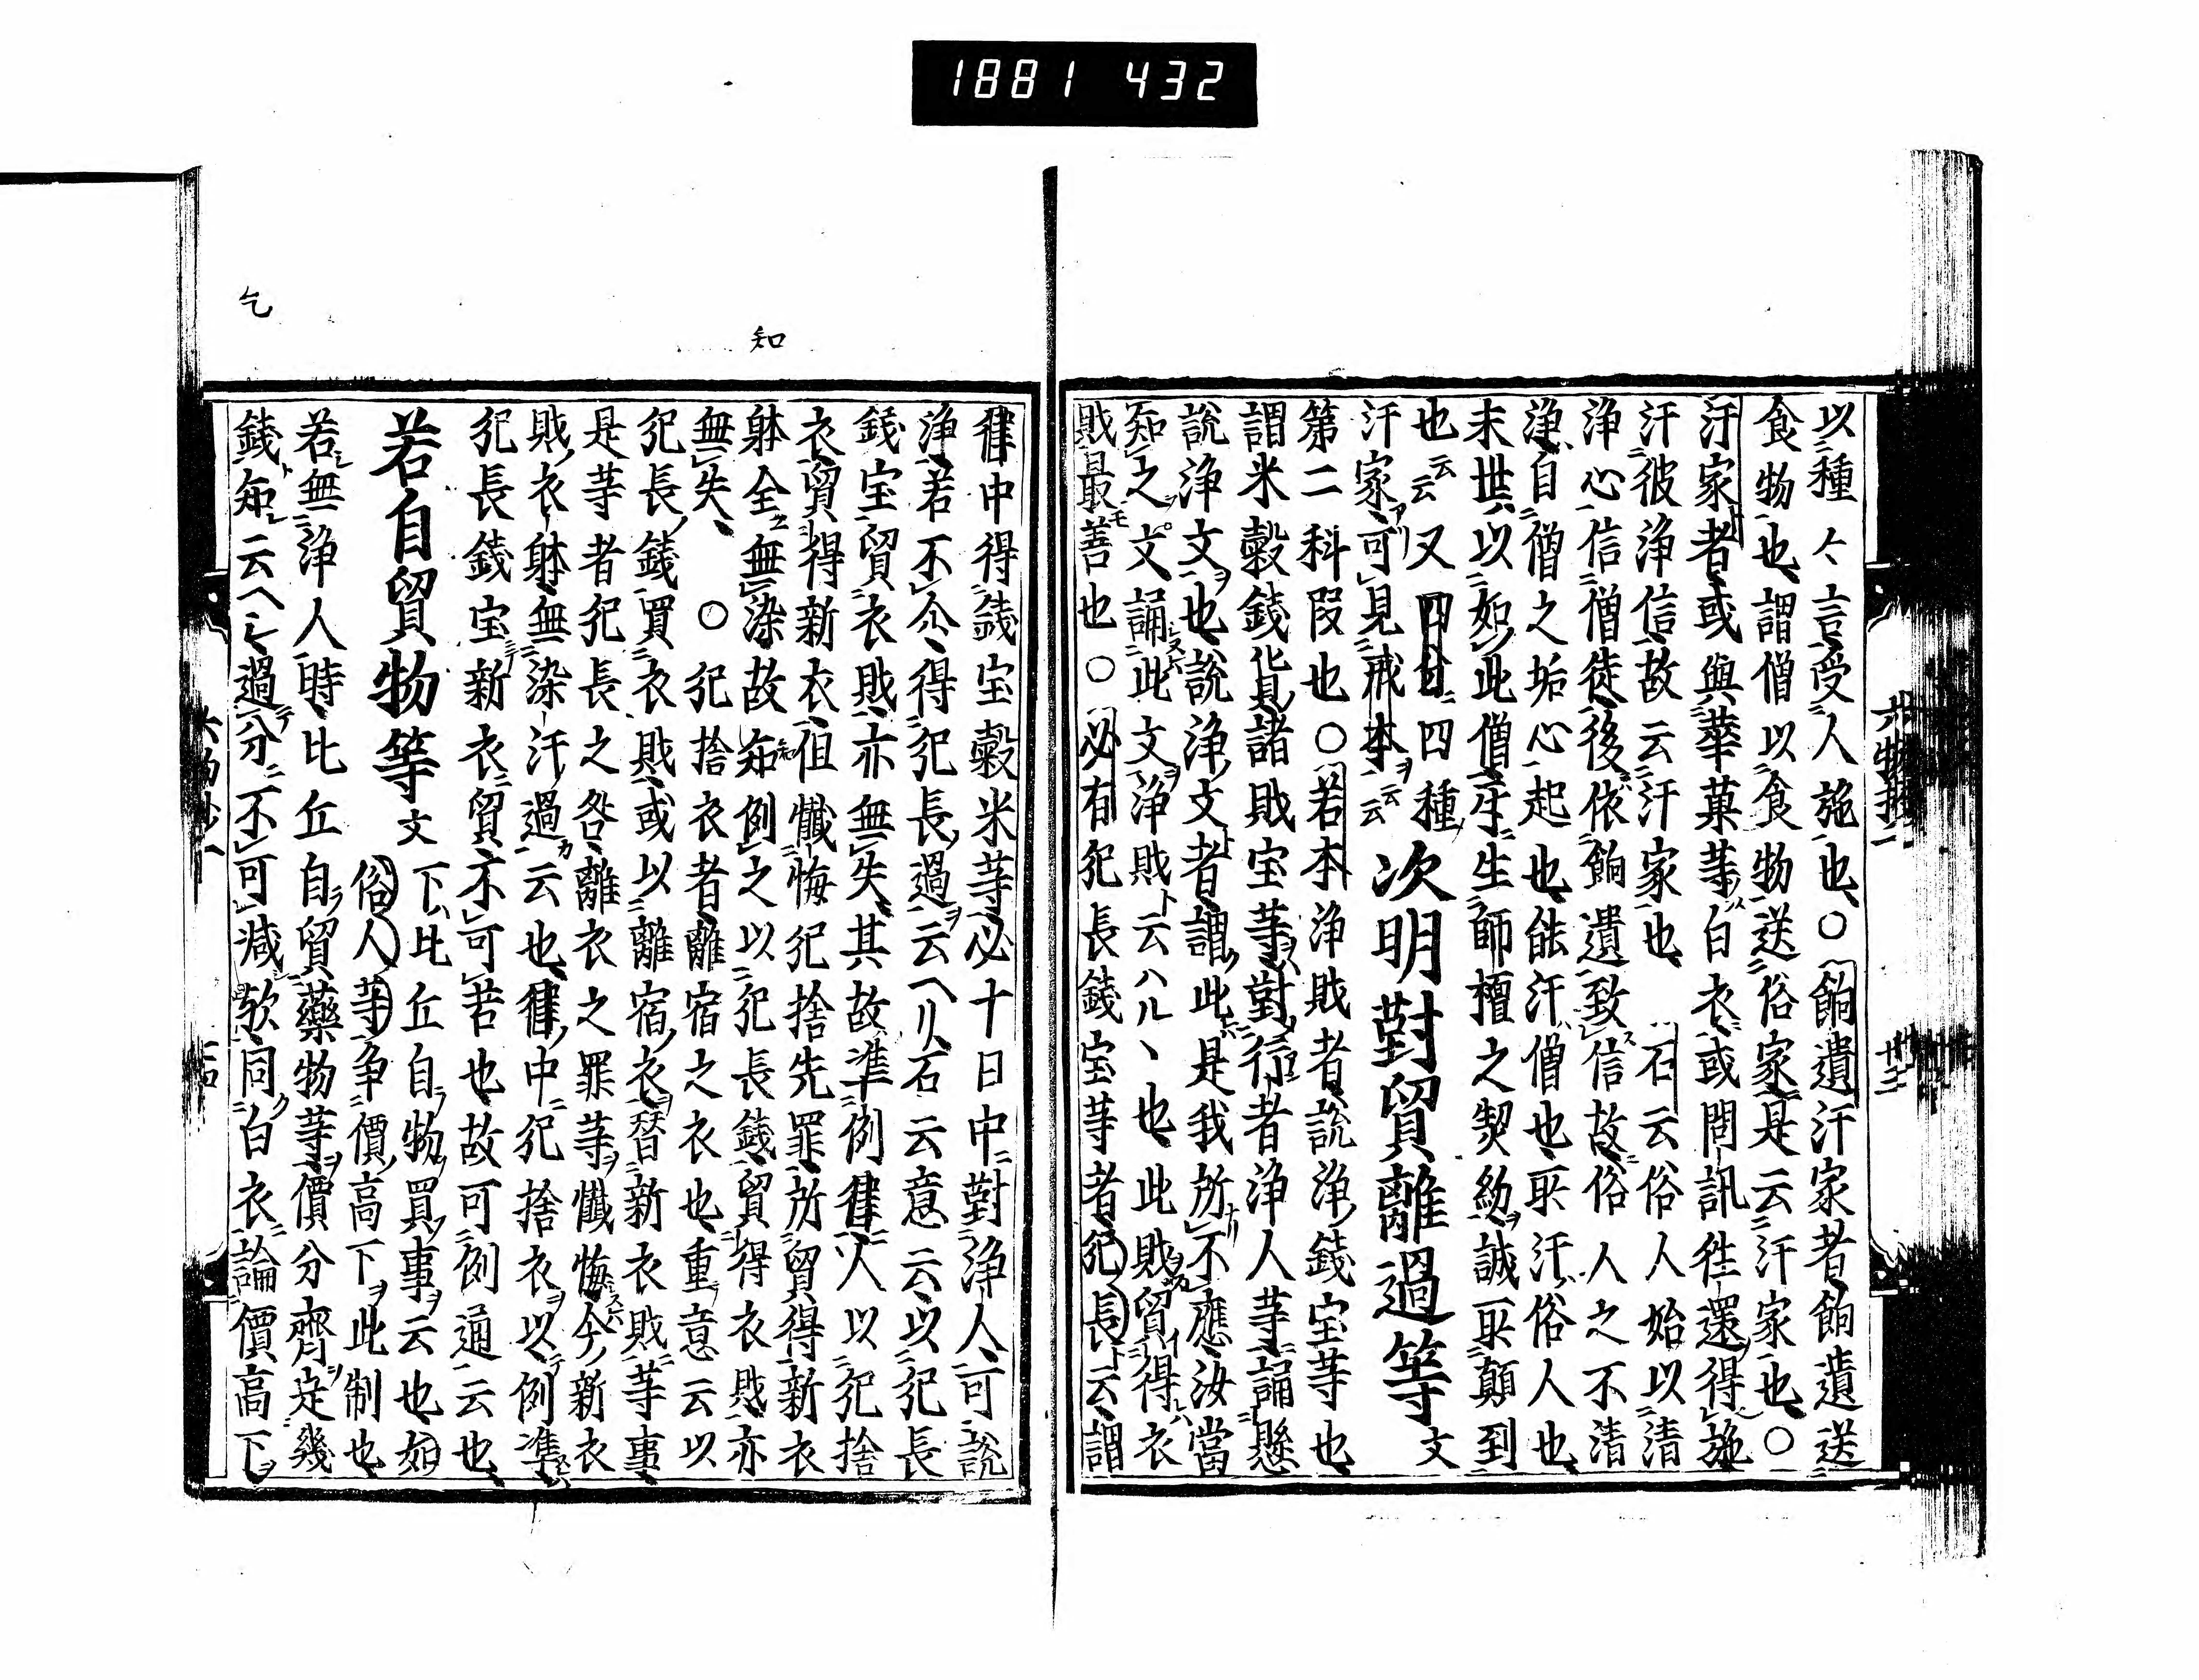 1881 432
以種々言受人施也○餉遺汙家者餉遺送
食物也謂僧以食物送俗家是云汙家也○
汙家者或與華菓等白衣或問訊往還得施
汙彼浄信故云汙家也 石云俗人始以清
浄心信僧徒後依餉遺致信故俗人之不清
浄自僧之垢心起也能汙僧也所汙俗人也
末世以如此僧生生師檀之契約誠所顛到
也云云又四廿四種 次明對貿離過等文
汙家可見戒本云云
第二科段也○若本浄財者説浄錢宝等也
謂米穀錢貨諸財宝等對行者浄人等誦懸
説浄文也説浄文者謂此是我所不應汝當
知之文誦此文浄財ト云ハルヽ也此財貿得衣
財最モ善也○必有犯長錢宝等者犯長ト云謂
律中得錢宝穀米等必十日中對浄人可説
浄若不尒得犯長過云ヘリ石云意云以犯長
錢宝貿衣財亦無失其故準例律人以犯捨
衣貿得新衣但懺悔犯捨先罪所貿得新衣
躰全無染故知例之以犯長錢貿得衣財亦
無失 ○犯捨衣者離宿之衣也重意云以
犯長錢買衣財或以離宿衣替新衣財等事
是等者犯長之咎離衣之罪等懺悔今新衣
財衣躰無染汙過云也律中犯捨衣以例準
犯長錢宝新衣貿不可苦也故可例通云也
若自貿物等文下比丘自物買事云也如
俗人等争價高下此制也
若無浄人時比丘自貿藥物等價分齊是幾
錢知云ヘレ過分不可減欤同白衣論價高下
知
乞
六物抄一